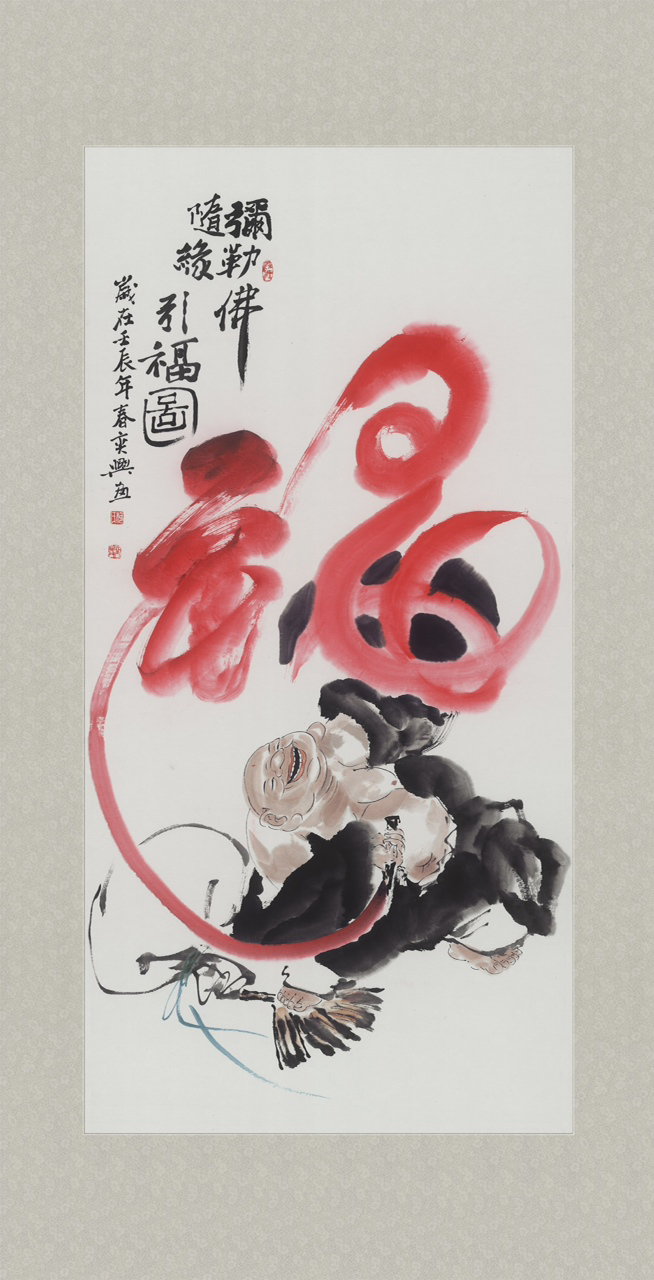 彌勒佛
隨緣引福圖
歲在壬辰年春奕興画
福